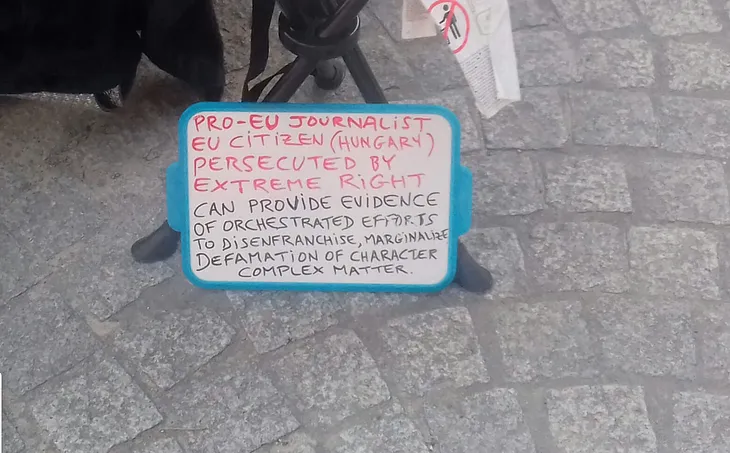 PRO-EU JOURNALIST
EU CITIZEN (HUNGARY)
PERSECUTED BY
EXTREME RIGHT
CAN PROVIDE EVIDENCE
OF ORCHESTRATED EFFORTS
TO DISENFRANCHISE, MARGINALIZE
DEFAMATION OF CHARACTER
COMPLEX MATTER.